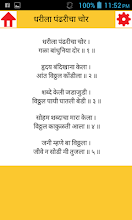 11:52 PM
धरीला पंढरीचा चोर
धरीला पंढरीचा चोर ।
गळा बांधुनिया दोर ॥ १ ॥
हृदय बंदिखाना केला ।
आंत विठ्ठल कोंडीला ॥ २ ॥
शब्दे केली जडाजुडी ।
विठ्ठल पायी घातली बेडी ॥ ३ ॥
सोहम शब्दाचा मारा केला ।
विठ्ठल काकुळती आला ॥ ४ ॥
जनी म्हणे बा विठ्ठला ।
जीवे न सोडी मी तुजला ॥ ५ ॥